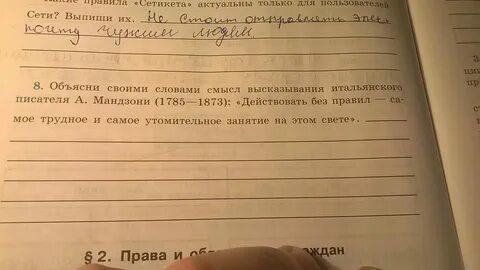 какие правила «Сетикета» актуальны только для пользователей
Сети? Выпиши их. Не стоит отправлять элек.
почту чужим людям.
8. Объясни своими словами смысл высказывания итальянского
писателя А. Мандзони (1785—1873): «Действовать без правил — са-
мое трудное и самое утомительное занятие на этом свете».
§ 2. Права и граждан